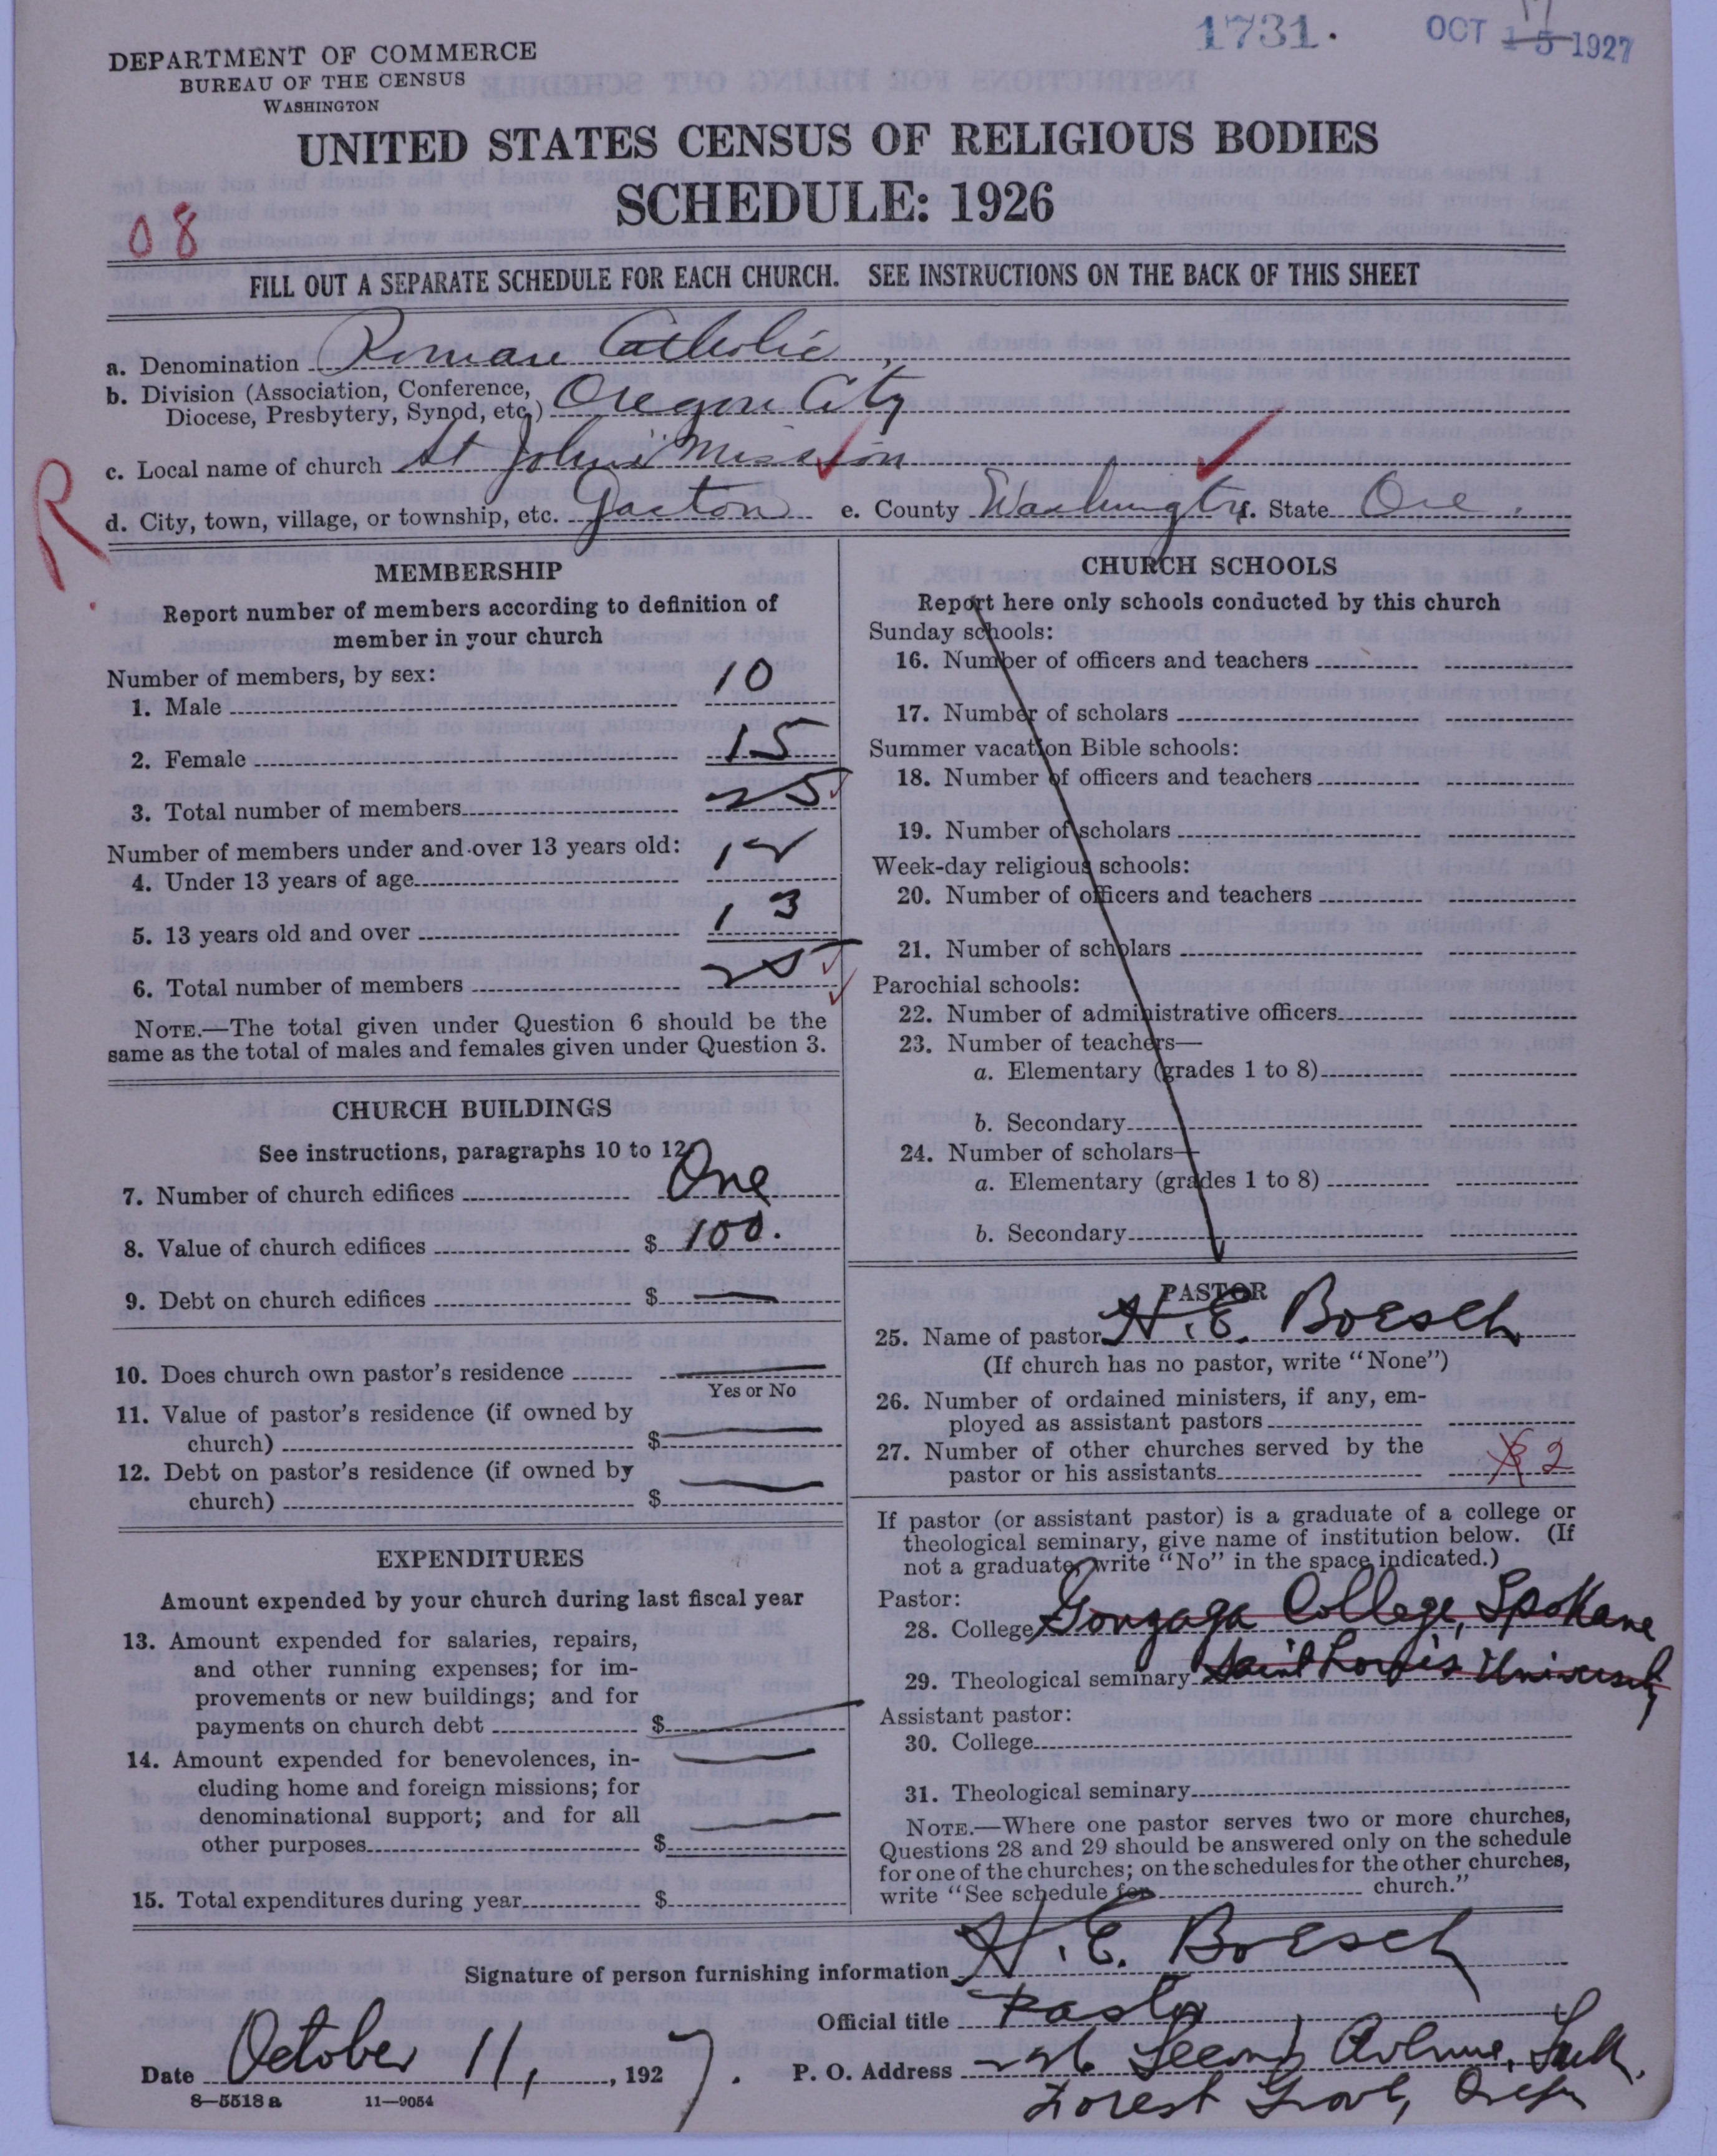 1731.
OCT 15 17 1927
DEPARTMENT OF COMMERCE
BUREAU OF THE CENSUS
WASHINGTON
UNITED STATES CENSUS OF RELIGIOUS BODIES
SCHEDULE: 1926
08
FILL OUT A SEPARATE SCHEDULE FOR EACH CHURCH. SEE INSTRUCTIONS ON THE BACK OF THIS SHEET
a. Denomination Roman Catholic
b. Division (Association, Conference,
Diocese, Presbytery, Synod, etc.) Oregon City
c. Local name of church St John's Mission
R
d. City, town, village, or township, etc. Gaston e. County Washington f. State Ore.
MEMBERSHIP
Report number of members according to definition of
member in your church
Number of members, by sex:
1. Male 10
2. Female 15
3. Total number of members 25
Number of members under and over 13 years old:
4. Under 13 years of age 12
5. 13 years old and over 13
6. Total number of members 25
NOTE.—The total given under Question 6 should be the
same as the total of males and females given under Question 3.
CHURCH BUILDINGS
See instructions, paragraphs 10 to 12
7. Number of church edifices One
8. Value of church edifices $ 100.
9. Debt on church edifices $ —
10. Does church own pastor's residence —
Yes or No
11. Value of pastor's residence (if owned by
church) $ —
12. Debt on pastor's residence (if owned by
church) $ —
EXPENDITURES
Amount expended by your church during last fiscal year
13. Amount expended for salaries, repairs,
and other running expenses; for im-
provements or new buildings; and for
payments on church debt $ —
14. Amount expended for benevolences, in-
cluding home and foreign missions; for
denominational support; and for all
other purposes $ —
15. Total expenditures during year $
CHURCH SCHOOLS
Report here only schools conducted by this church
Sunday schools:
16. Number of officers and teachers
17. Number of scholars
Summer vacation Bible schools:
18. Number of officers and teachers
19. Number of scholars
Week-day religious schools:
20. Number of officers and teachers
21. Number of scholars
Parochial schools:
22. Number of administrative officers
23. Number of teachers—
a. Elementary (grades 1 to 8)
b. Secondary
24. Number of scholars—
a. Elementary (grades 1 to 8)
b. Secondary
PASTOR
25. Name of pastor H. E. Boesch
(If church has no pastor, write "None")
26. Number of ordained ministers, if any, em-
ployed as assistant pastors
27. Number of other churches served by the
pastor or his assistants 2
If pastor (or assistant pastor) is a graduate of a college or
theological seminary, give name of institution below. (If
not a graduate, write "No" in the space indicated.)
Pastor:
28. College Gonzaga College, Spokane
29. Theological seminary Saint Louis University
Assistant pastor:
30. College
31. Theological seminary
NOTE.—Where one pastor serves two or more churches,
Questions 28 and 29 should be answered only on the schedule
for one of the churches; on the schedules for the other churches,
write "See schedule for church."
Signature of person furnishing information H. E. Boesch
Official title Pastor
Date October 11, 1927. P. O. Address 226 Second Avenue,
Forest Grove, Oregon
8—5518 a 11—9054